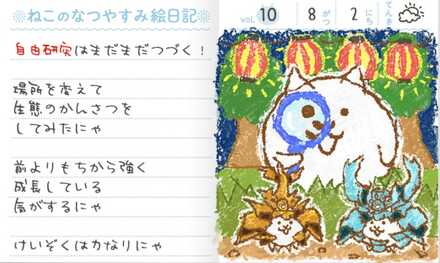 ❊ねこのなつやすみ絵日記❊
vol. 10 8がつ 2にち てんき
自由研究はまだまだつづく！
場所を変えて
生態のかんさつを
してみたにゃ
前よりもちから強く
成長している
気がするにゃ
けいぞくはカなりにゃ